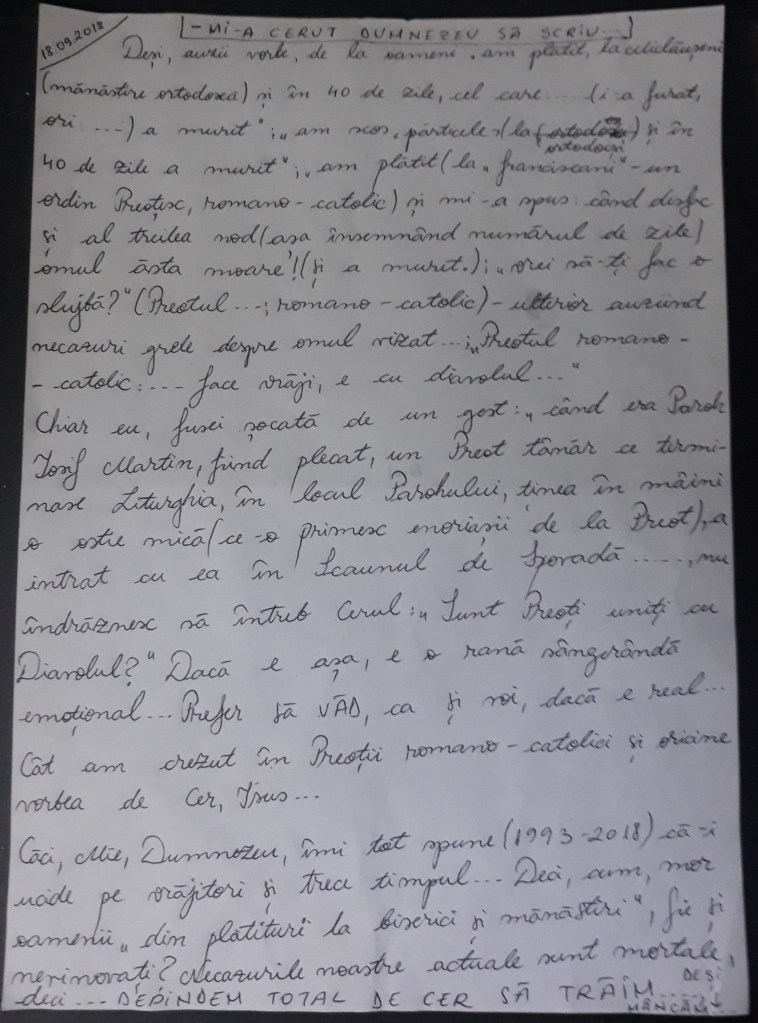 18.09.2018
[-MI-A CERUT DUMNEZEU SĂ SCRIU...]
Deși, auzii vorbe, de la oameni „am plătit, la
(mănăstire ortodoxă) și în 40 de zile, cel care..... (i-a furat,
ori ....) a murit"; „am scos „părticele"(la ortodocși) și în
40 de zile a murit"; „am plătit (la „franciscani" - un
ordin Preoțesc, romano-catolic) și mi-a spus: când desfac
și al treilea nod (așa însemnând numărul de zile)
omul ăsta moare'! (și a murit.); „vrei să-ți fac o
slujbă?" (Preotul ...; romano-catolic) - ulterior auzind
necazuri grele despre omul vizat ...; „Preotul romano-
-catolic: ... face vrăji, e cu diavolul..."
Chiar eu, fusei șocată de un gest: „când era Paroh
Iosif Martin, fiind plecat, un Preot tânăr ce termi-
nase Liturghia, în locul Parohului, ținea în mâini
o ostie mică (ce-o primesc enoriașii de la Preot), a
intrat cu ea în Scaunul de Spovadă ....., nu
îndrăznesc să întreb Cerul: „Sunt Preoți uniți cu
Diavolul?" Dacă e așa, e o rană sângerândă
emoțional... Prefer să VĂD, ca și voi, dacă e real...
Cât am crezut în Preoții romano-catolici și oricine
vorbea de Cer, Isus...
Căci, Mie, Dumnezeu, îmi tot spune (1993-2018) că-i
ucide pe vrăjitori și trece timpul... Deci, cum, mor
oamenii „din plătituri la biserici și mănăstiri", fie și
nevinovați? Necazurile noastre actuale sunt mortale,
deci... DEPINDEM TOTAL DE CER SĂ TRĂIM..... DEȘI
MÂNCĂM